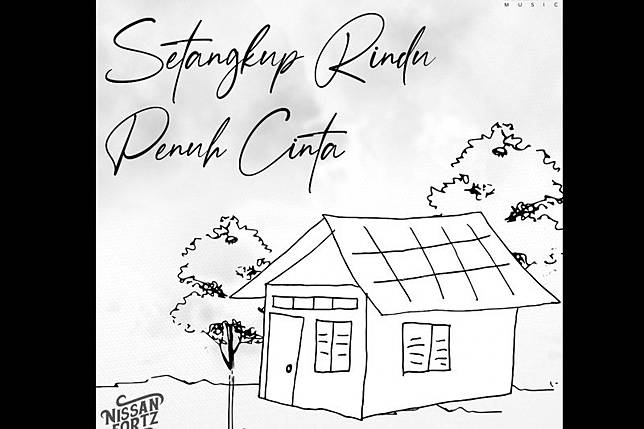 MUSIC
Setangkup Rindu
Penuh Cinta
NISSAN
FORTZ